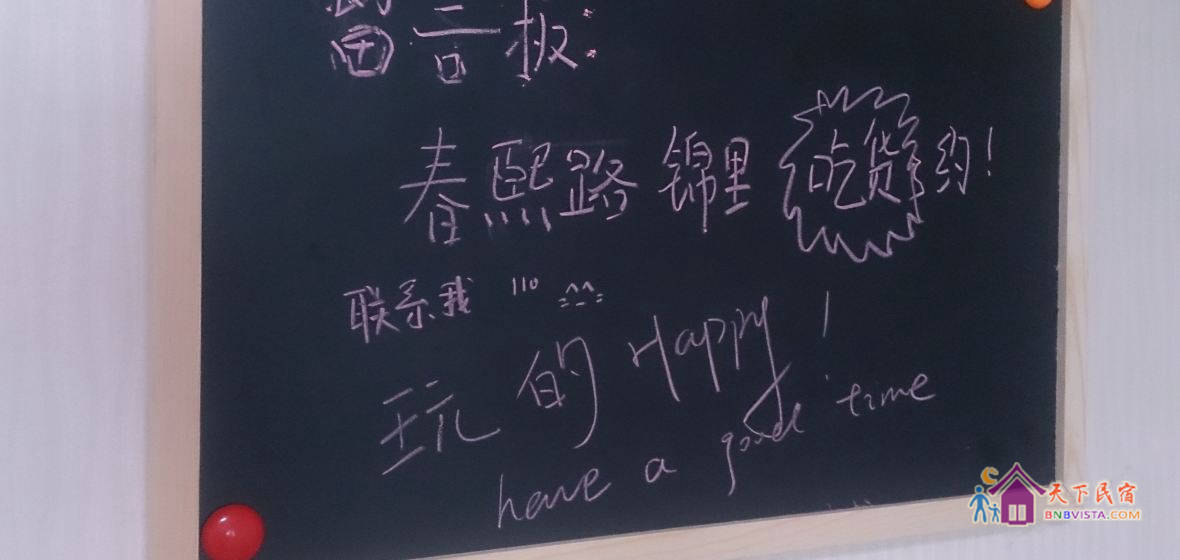 留言板:
春熙路 锦里 吃货 约!
联系我 110
玩的Happy!
have a good time
天下民宿
BNBVISTA.COM